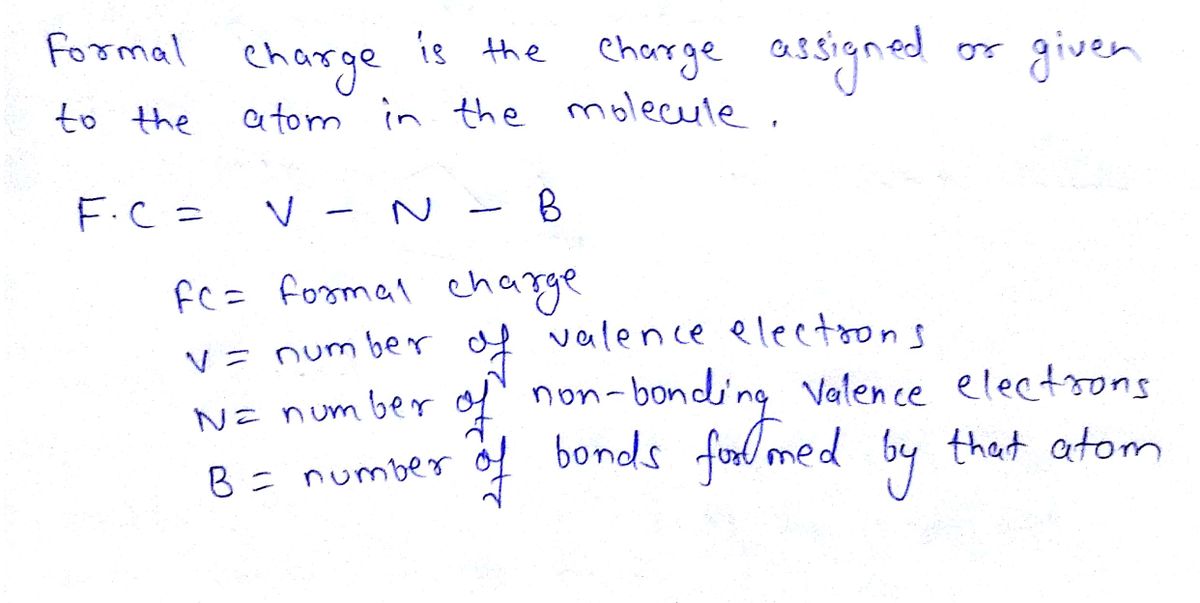 Formal charge is the charge assigned or given
to the atom in the molecule.
F.C = V - N - B
FC = formal charge
V = number of valence electrons
N = number of non-bonding valence electrons
B = number of bonds formed by that atom